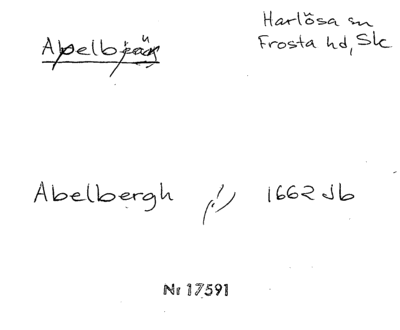 Harlösa sn
Frosta hd, Sk
Abelbergh 1662 Jb
Nr 17591